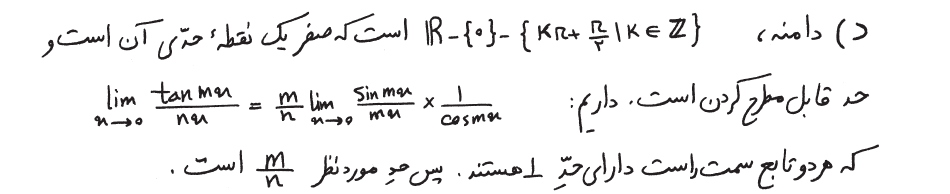 د) دامنه، ℝ-{0}-{kπ+π/2 | k∈ℤ} است که صفر یک نقطهٔ حدّی آن است و
حد قابل مطرح کردن است. داریم: lim_{x→0} tan mx / nx = m/n lim_{x→0} sin mx / mx × 1 / cos mx
که هر دو تابع سمت راست دارای حدّ 1 هستند. پس حدِ مورد نظر m/n است.